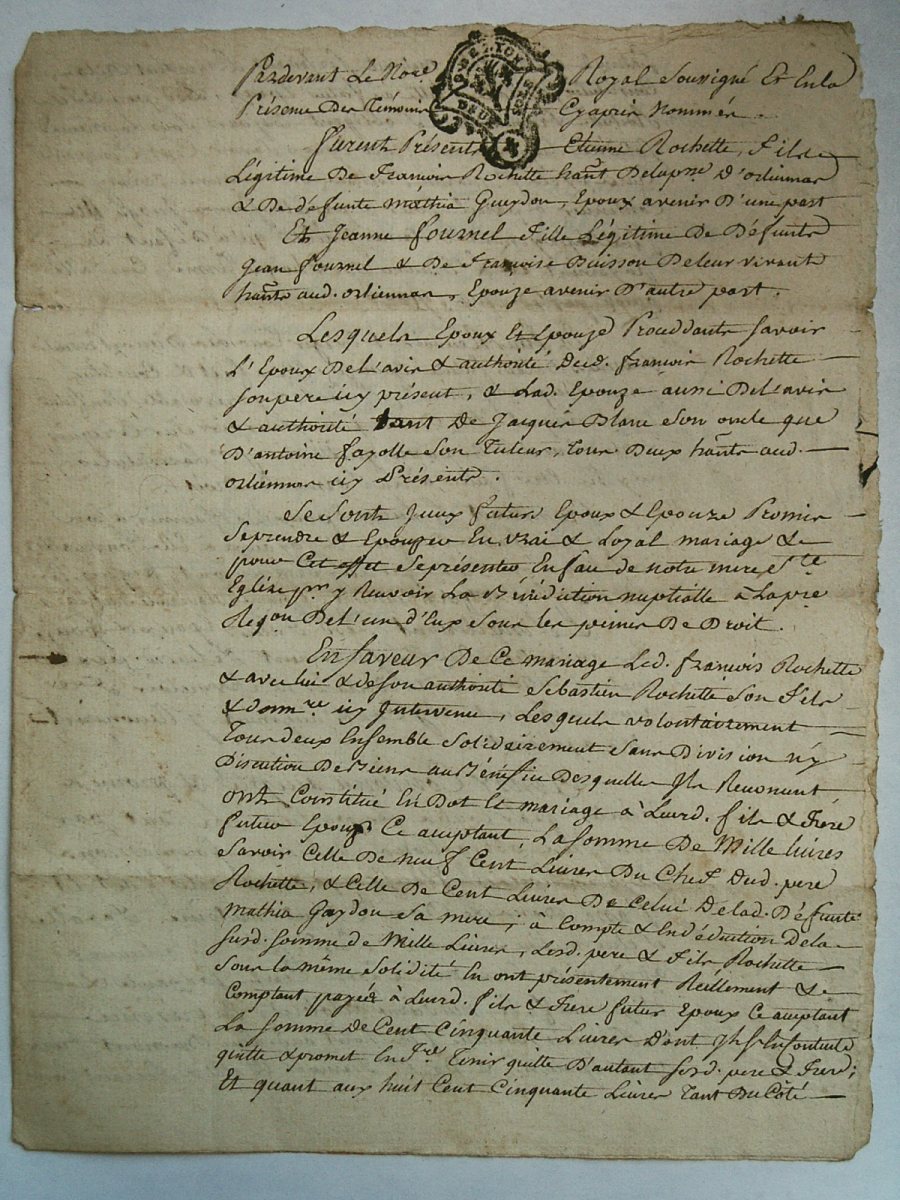 Pardevant Le Nore Royal Soussigné Et En la
Présence Des Témoins Cyaprès Nommés.
G.DE.LYON
DEUX SOLS
furent Présents Etienne Rochette, fils
Légitime De françois Rochette habt Delapsse d'orliennas
& De défunte mathia Guydon, Epoux avenir D'une part
Et Jeanne fournel fille Légitime De Défunts
Jean fournel & De françoise Buisson De leur vivant
habts aud. orliennas, Epouze avenir D'autre part.
Lesquels Epoux Et Epouze Proceddants savoir
L'Epoux De L'avis & authorité Dud. françois Rochette
son pere icy présent, & Lad. Epouze aussi De L'avis
& authorité tant De Jacques Blanc son oncle que
D'antoine fayolle son Tuteur, tous Deux habts aud.
orliennas icy Présents.
Se Sont Iceux futurs Epoux & Epouze Promis
Se prendre & Epouzer En vrai & Loyal mariage &
pour Cet effet Se présenter En face de notre mere Ste
Eglize pr y Recevoir La Bénédiction nuptialle à La pre
Reqon De L'un d'Eux Sous les peines De Droit.
En faveur De Ce mariage Led. françois Rochette
& avec lui & de son authorité Sebastien Rochette son fils
& donre icy Intervenu, Lesquels volontairement
Tous deux Ensemble Solidairement Sans Division ny
Discution De Biens au Bénéfice Desquelles Ils Renoncent
ont Constitué En Dot Et mariage à Leurd. fils & frere
futur Epoux Ce acceptant, La Somme De Mille Livres
Savoir Celle De neuf Cent Livres Du Chef Dud. pere
Rochette, & Celle De Cent Livres De Celui De lad. Défunte
mathia Gaydon Sa mere; à Compte & En déduction De la
susd. somme de Mille Livres, Lesd. pere & fils Rochette
Sous la même Solidité En ont présentement Réellement &
Comptant payée à Leurd. fils & frere futur Epoux Ce acceptant
La Somme De Cent Cinquante Livres D'ont
quitte & promet En Tenir quitte D'autant sesd. pere & frere;
Et quant aux huit Cent Cinquante Livres Tant Du Côté